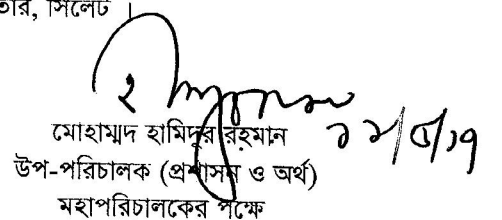 তার, সিলেট ।
মোহাম্মদ হামিদুর রহমান
উপ-পরিচালক (প্রশাসন ও অর্থ)
মহাপরিচালকের পক্ষে